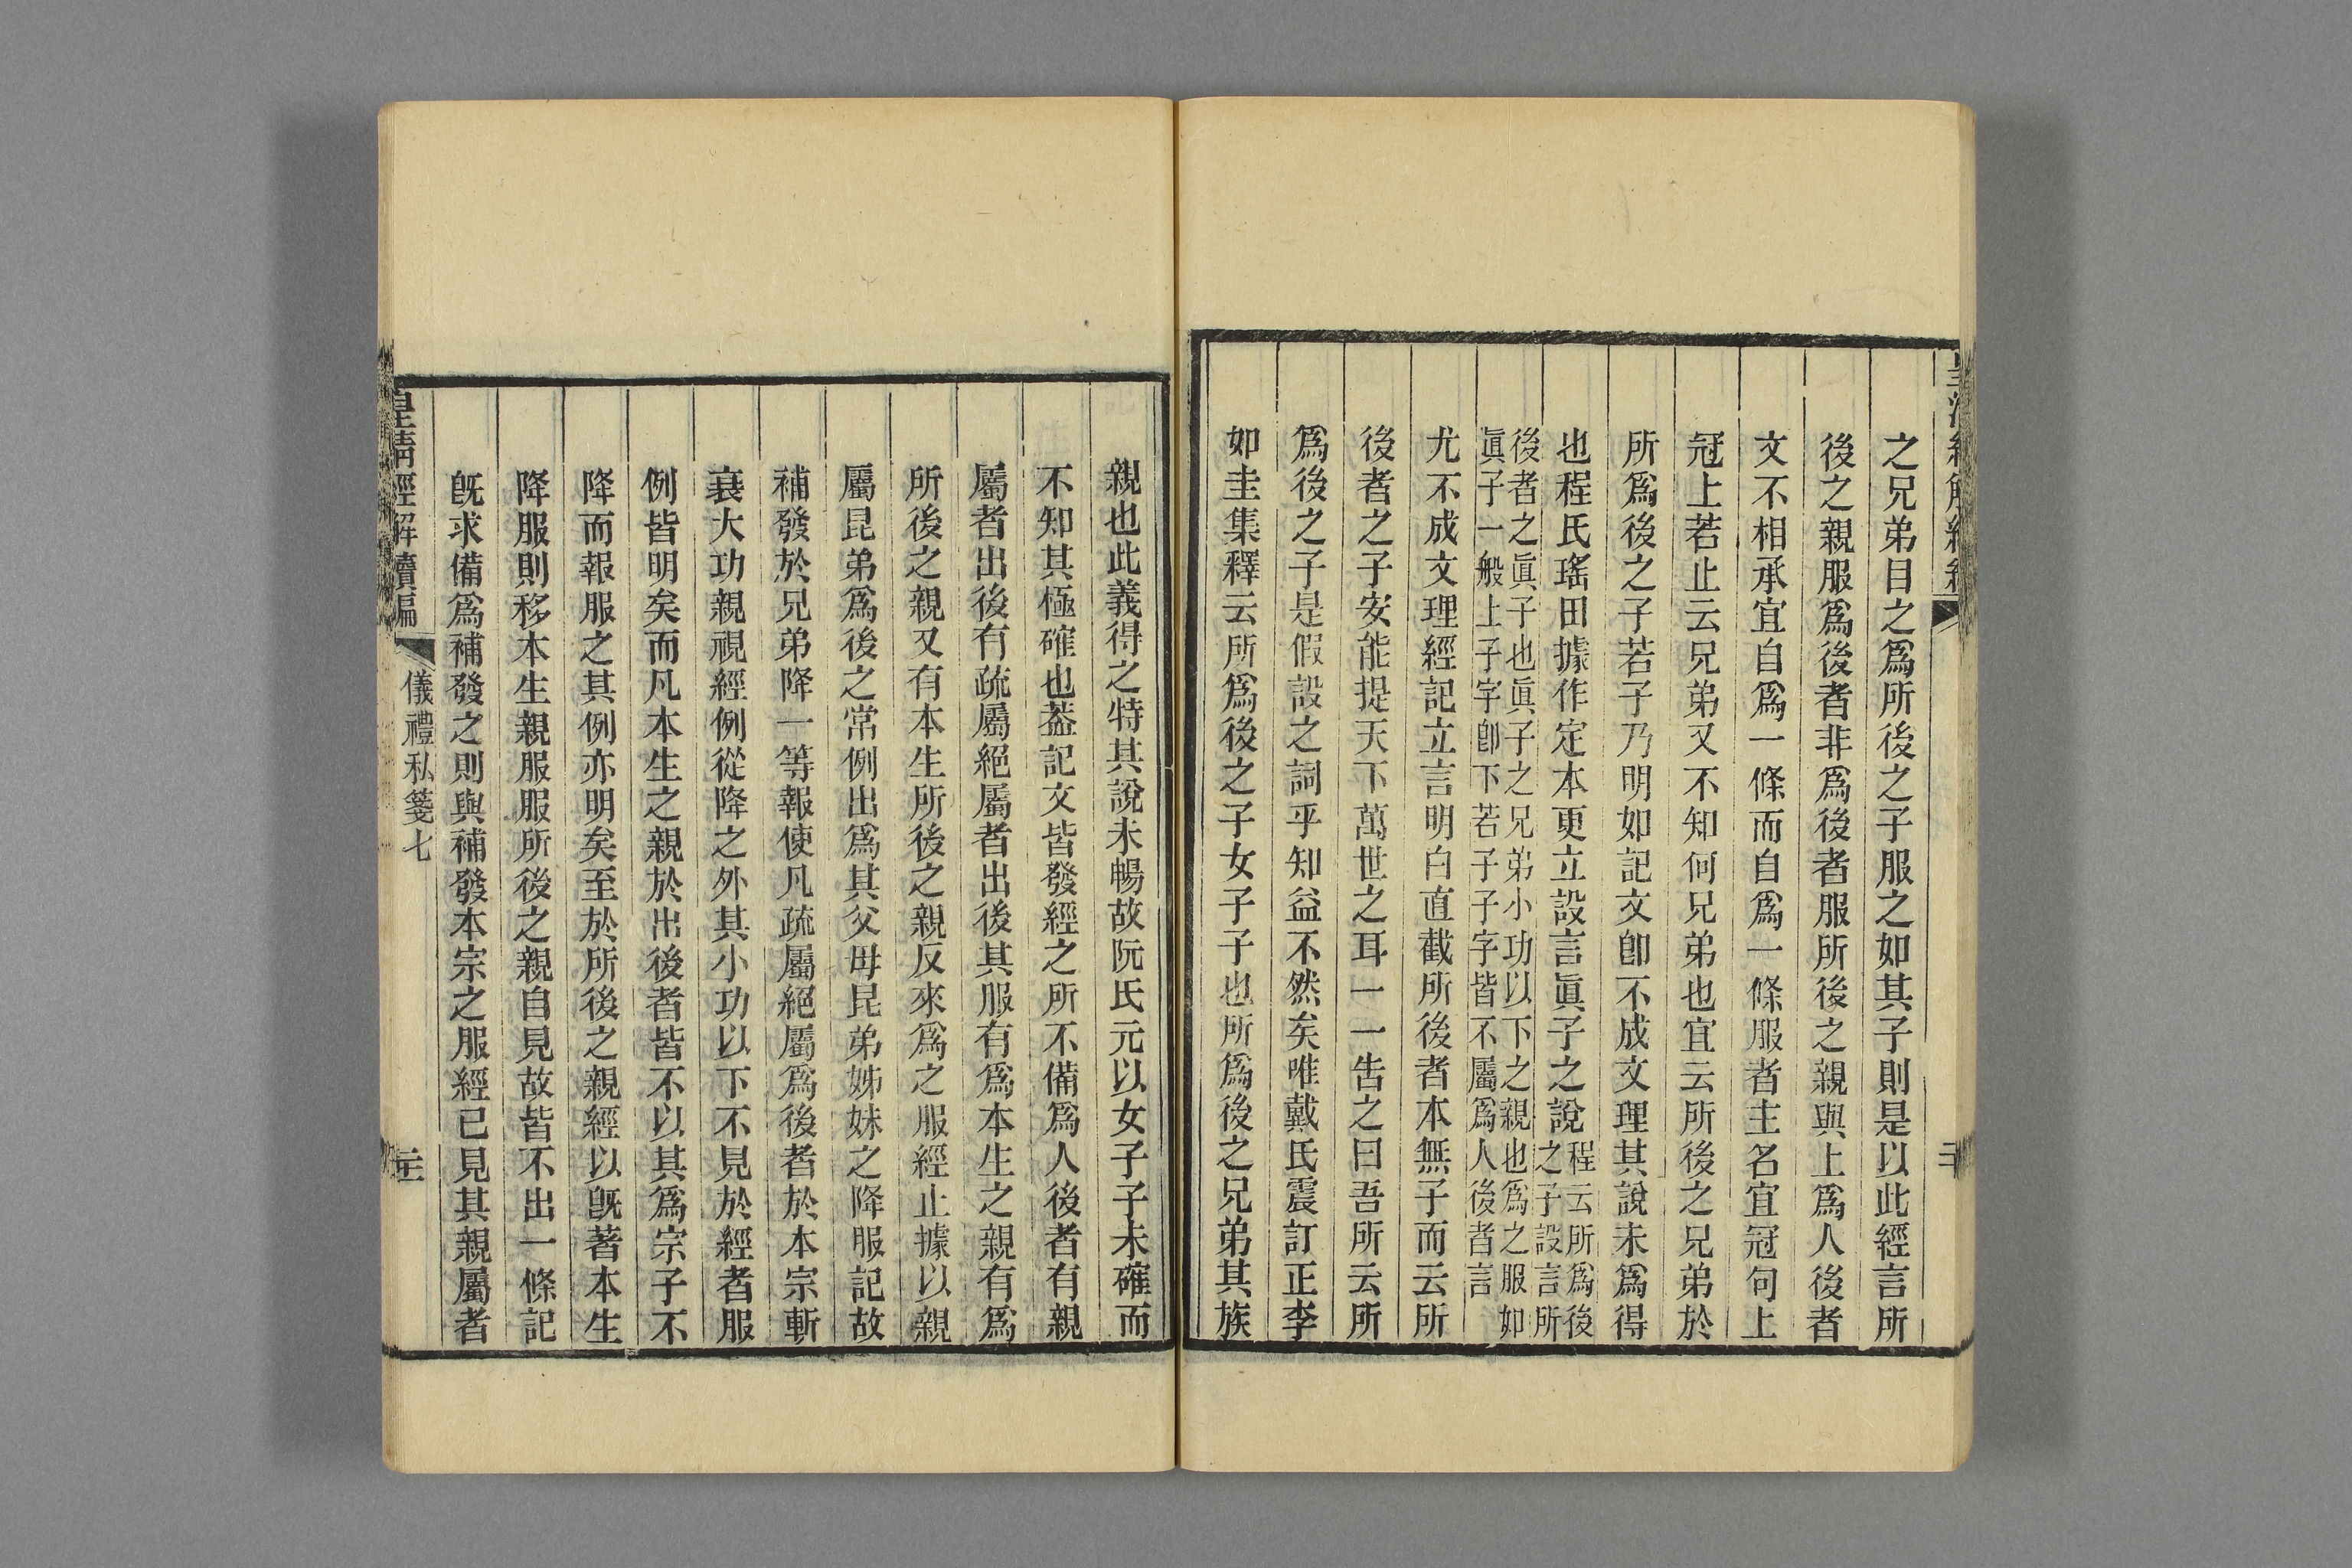 之兄弟目之爲所後之子服之如其子則是以此經言所
後之親服爲後者非爲後者服所後之親與上爲人後者
文不相承宜自爲一條而自爲一條服者主名宜冠句上
冠上若止云兄弟又不知何兄弟也宜云所後之兄弟於
所爲後之子若子乃明如記文卽不成文理其說未爲得
也程氏瑤田據作定本更立設言眞子之說程云所爲後
之子設言所
後者之眞子也眞子之兄弟小功以下之親也爲之服如
眞子一般上子字卽下若子子字皆不屬爲人後者言
尤不成文理經記立言明白直截所後者本無子而云所
後者之子安能提天下萬世之耳一一告之曰吾所云所
爲後之子是假設之詞乎知益不然矣唯戴氏震訂正李
如圭集釋云所爲後之子女子子也所爲後之兄弟其族
親也此義得之特其說未暢故阮氏元以女子子未確而
不知其極確也葢記文皆發經之所不備爲人後者有親
屬者出後有疏屬絕屬者出後其服有爲本生之親有爲
所後之親又有本生所後之親反來爲之服經止據以親
屬昆弟爲後之常例出爲其父母昆弟姊妹之降服記故
補發於兄弟降一等報使凡疏屬絕屬爲後者於本宗斬
衰大功親視經例從降之外其小功以下不見於經者服
例皆明矣而凡本生之親於出後者皆不以其爲宗子不
降而報服之其例亦明矣至於所後之親經以旣著本生
降服則移本生親服服所後之親自見故皆不出一條記
旣求備爲補發之則與補發本宗之服經已見其親屬者
皇清經解續編
儀禮私箋七